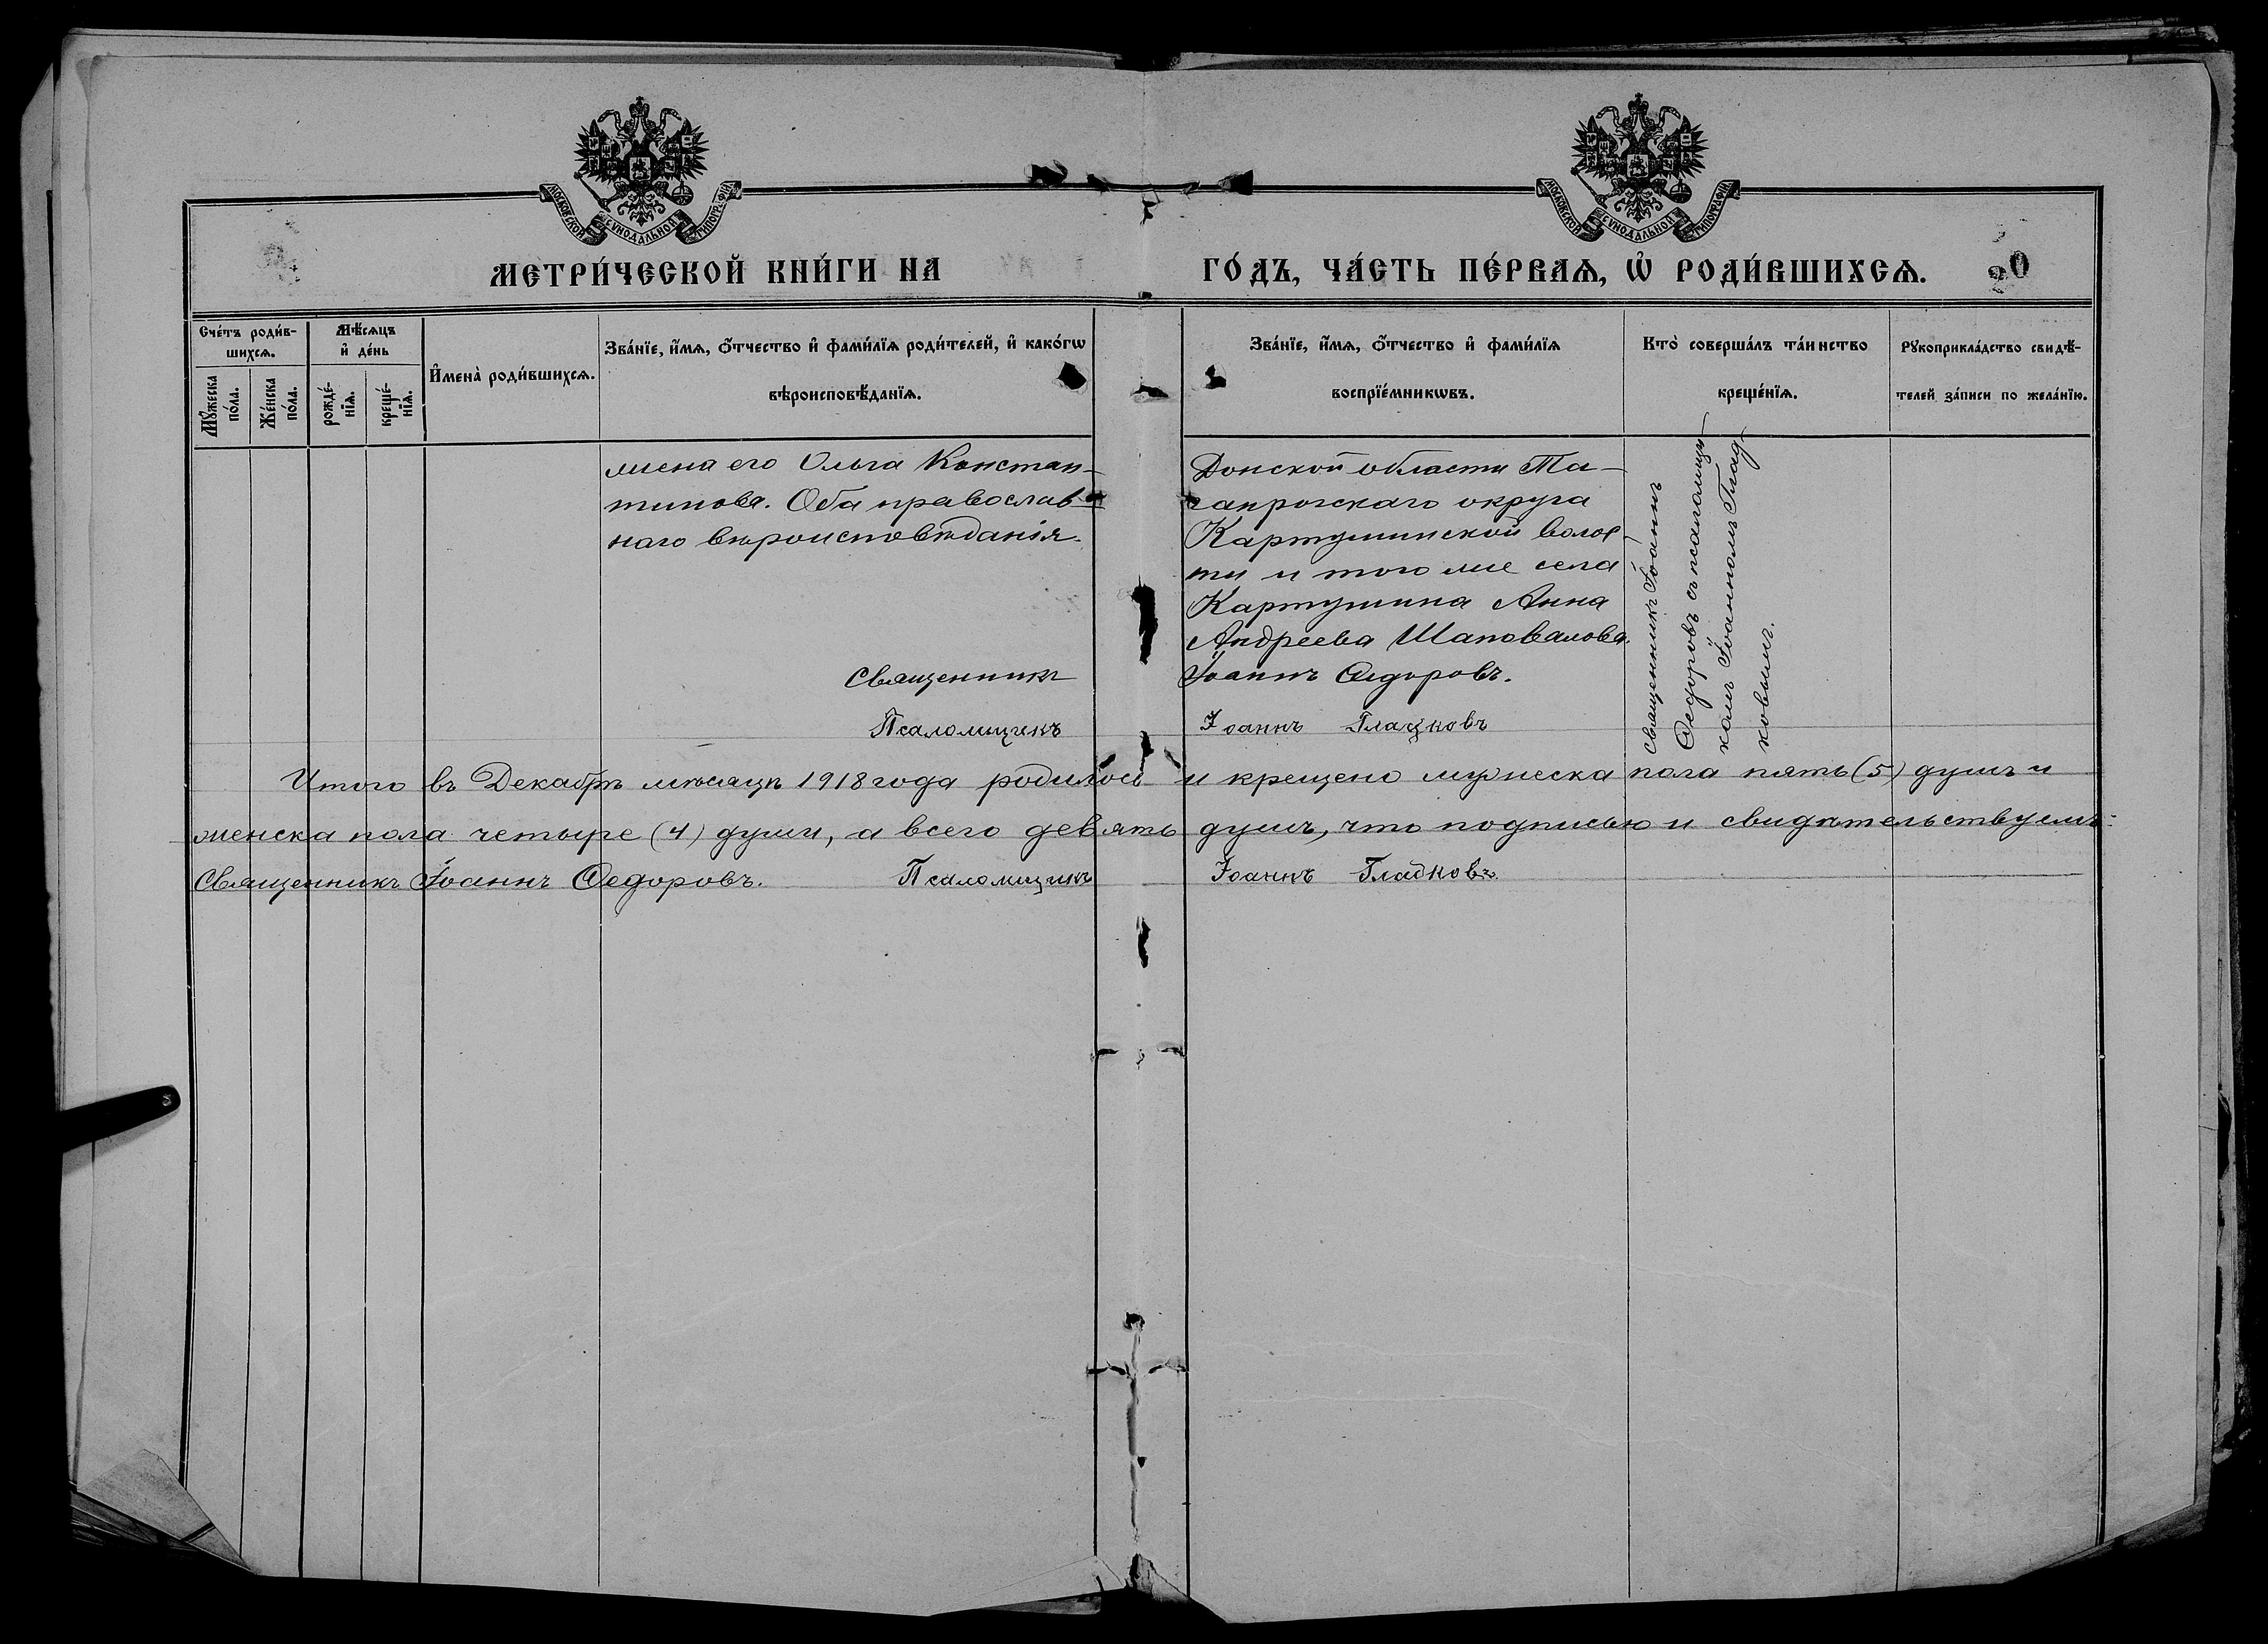 МОСКОВСКОЙ СѴНОДАЛЬНОЙ ТИПОГРАФІИ
МОСКОВСКОЙ СѴНОДАЛЬНОЙ ТИПОГРАФІИ
МЕТРИ́ЧЕСКОЙ КНИ́ГИ НА
ГО́ДЪ, ЧА́СТЬ ПЕ́РВАѦ, Ѽ РОДИ́ВШИХСѦ.
20
Сче́тъ роди́в-
шихсѧ.
Мꙋжеска
по́ла.
Же́нска
по́ла.
Мѣ́сѧцъ
и҆ де́нь
рожде́-
нїѧ.
креще́-
нїѧ.
И҆мена̀ роди́вшихсѧ.
Зва́нїе, и҆́мѧ, ѻ҆́тчество и҆ фами́лїѧ роди́телей, и҆ како́гѡ
вѣроисповѣ́данїѧ.
Зва́нїе, и҆́мѧ, ѻ҆́тчество и҆ фами́лїѧ
воспрїе́мникѡвъ.
Кто̀ соверша́лъ та́инство
креще́нїѧ.
Рꙋкоприкла́дство свидѣ́-
телей за́писи по жела́нїю.
жена его Ольга Констан-
тинова. Оба православ-
наго вѣроисповѣданія.
Священникъ
Псаломщикъ
Донской области Та-
ганрогскаго округа
Картушинской волос-
ти и того же села
Картушина Анна
Андреева Шаповалова.
Іоаннъ Ѳедоровъ.
Іоаннъ Гладковъ
Священникъ Іоаннъ
Ѳедоровъ съ псаломщи-
комъ Іоанномъ Глад-
ковымъ.
Итого въ Декабрѣ мѣсяцѣ 1918 года родилось и крещено мужеска пола пять (5) душъ и
женска пола четыре (4) души, а всего девять душъ, что подписью и свидѣтельствуемъ:
Священникъ Іоаннъ Ѳедоровъ. Псаломщикъ Іоаннъ Гладковъ.